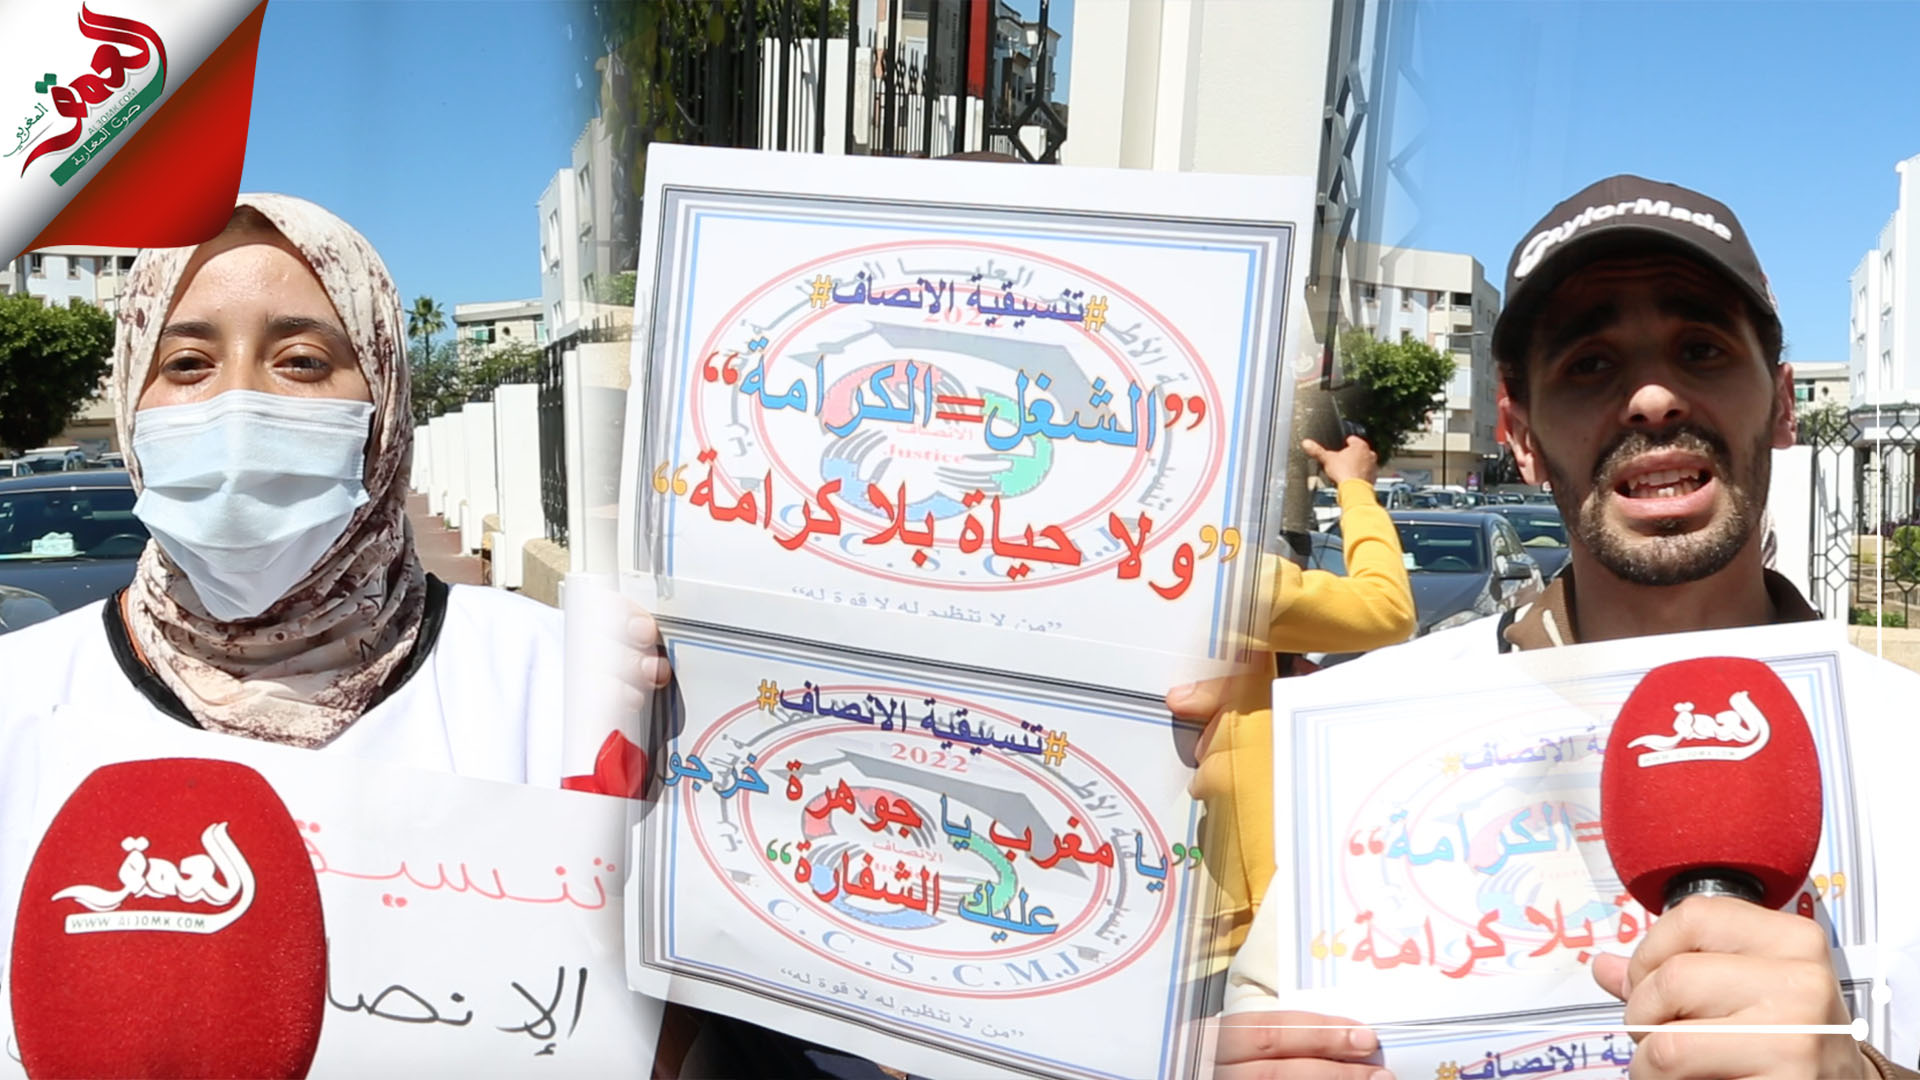 العمق
المغربي
AL3OMK.COM
صوت المغاربة
TaylorMade
#تنسيقية الانصاف#
2022
”الشغل=الكرامة“
الانصاف
Justice
”ولا حياة بلا كرامة“
C.C.S.C.M.J
”من لا تنظيم له لا قوة له“
#تنسيقية الانصاف#
2022
”يا مغرب يا جوهرة خرجو
الانصاف
عليك الشفارة“
C.C.S.C.M.J
”من لا تنظيم له لا قوة له“
العمق
WWW.Al3OMK.COM
تنسيقـ
الإنصا
العمق
الانصاف#
=الكرامة“
بلا كرامة“
الانصاف#